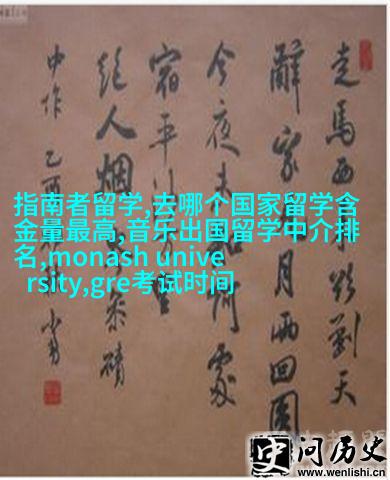 指南者留学,去哪个国家留学含
金量最高,音乐出国留学中介排
名,monash unive
rsity,gre考试时间
走馬西欲到天
辭家月兩回圓
今夜未知何處
宿平沙
絕人煙岑參磧
中作 乙酉
史 问历史
www.wenlishi.cn